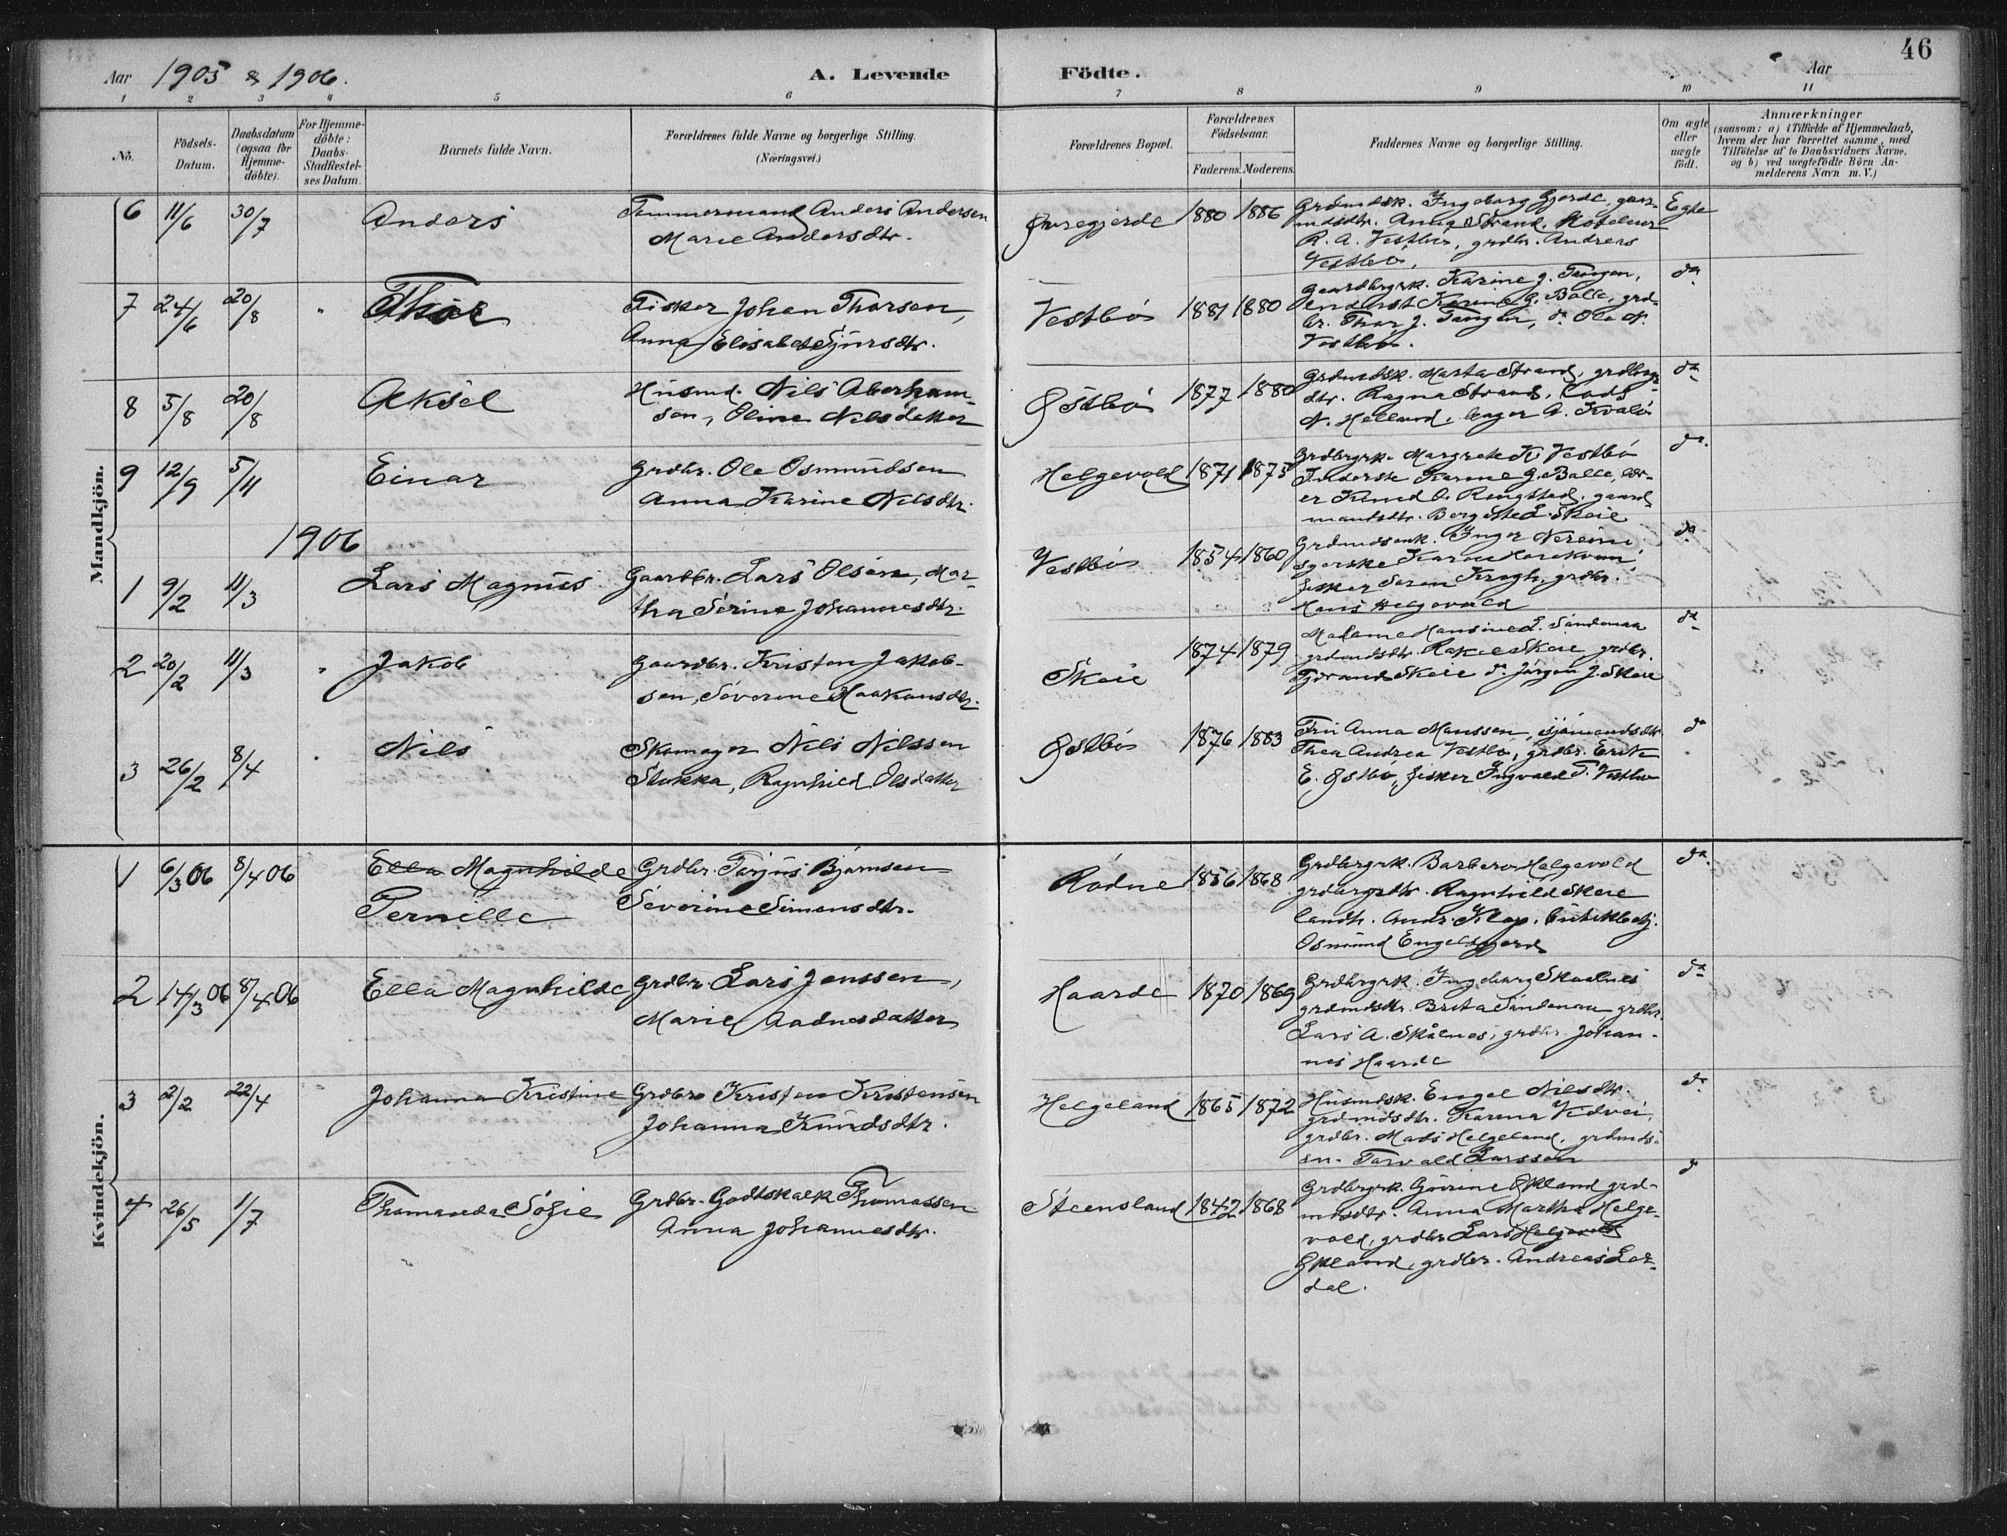 46
Aar 1905 & 1906. A. Levende Födte. Aar
1 2 3 4 5 6 7 8 9 10 11
No.
Födsels-
Datum.
Daabsdatum
(ogsaa for
Hjemme-
döbte).
For Hjemme-
döbte:
Daabs-
Stadfæstel-
ses Datum.
Barnets fulde Navn.
Forældrenes fulde Navne og borgerlige Stilling.
(Næringsvei.)
Forældrenes Bopæl.
Forældrenes
Födselsaar.
Faderens. Moderens.
Faddernes Navne og borgerlige Stilling.
Om ægte
eller
uægte
født.
Anmærkninger
(saasom: a) i Tilfælde af Hjemmedaab,
hvem der har forrettet samme, med
Tilföielse af to Daabsvidners Navne.
og b) ved uægtefödte Börn An-
melderens Navn m. V.)
Mandkjön.
6 11/6 30/7 Anders
Tømmermand Anders Andersen
Marie Andersdtr.
Øvregjerde 1880 1886
Grdmdsk. Ingeborg Gjerde, gaar-
mdsdtr. Anna Strand,
R. A. Vestbø, grdbr. Andreas
Vestbø,
Egte
7 24/6 20/8 " Thor
Fisker Johan Thorsen,
Anna Elisabet Sjursdtr.
Vestbø 1881 1880
Gaardbrgrk. Karine J. Tungen,
inderst Karine G. Balle, grd-
br. Thor J. Tungen, do Ole N.
Vestbø.
do
8 5/8 20/8 Aksel
Husmd. Nils Aberham-
sen, Oline Nilsdatter
Østbø 1877 1880
Grdmdsk. Marta Strand, grdbrgr-
dtr. Ragna Strand, Lods
N. Helland, bager A. Kvalø
do
9 12/9 5/11 Einar
Grdbr. Ole Osmundsen
Anna Karine Nilsdtr.
Helgevold 1871 1875
Grdbrgrk. Margrete K. Vestbø
Inderste Karine G. Balle, lær-
er Knud O. Ringstad, gaard-
mandsdtr. Borgilte L. Skeie
do
1906
1 9/2 11/3 Lars Magnus
Gaardbr. Lars Olsen, Mar-
tha Serine Johannesdtr.
Vestbø 1854 1860
Grdmdsenk. Inger Nereim
sypерske Karen
fisker Søren Krogh, grdbr.
Hans Helgevold
do
2 20/2 11/3 " Jakob
Gaardbr. Kristen Jakob-
sen, Severine Haakonsdtr.
Skeie 1874 1879
Madame Hansine L. Søndenaa
grdmdsdtr. Rakel Skeie, grdbr.
Tjerand Skeie do Jørgen J. Skeie
do
3 26/2 8/4 " Nils
Skomager Nils Nilssen
Stokka, Ragnhild Olsdatter
Østbø 1876 1883
Fru Anna Monssen, sjømandsdtr.
Thea Andrea Vestbø, grdbr. Erik
E. Østbø, fisker Ingvald T. Vestbø
do
Kvindekjön.
1 6/3 06 8/4 06 Ella Magnhilde
Pernille
Grdbr. Torjus Bjørnsen
Severine Simonsdtr.
Rødne 1856 1868
Grdbrgrk. Barbero Helgevold
grdbrgrdtr. Ragnhild Skeie
landh. Andr. Klep,
Osmund Engelsgjerd
do
2 14/3 06 8/4 06 Ella Magnhilde
Grdbr. Lars Jenssen,
Marie Aadnesdatter
Haarde 1870 1869
Grdbrgrk. Ingeborg Skaalnes
grdmdsdtr. Brita Søndenaa, grdbr.
Lars A. Skålnes, grdbr. Johan-
nes Haarde
do
3 2/2 22/4 Johanna Kristine
Grdbr. Kristen Kristensen
Johanna Knudsdtr.
Helgeland 1865 1872
Husmdsk. Engel Nilsdtr.
grdmdsdtr. Karina Vedvei,
grdbr. Mads Helgeland, grdmds-
sn. Torvald Larssen
do
4 26/5 1/7 Thomanda Sofie
Grdbr. Godtskalk Thomassen
Anna Johannesdtr.
Steensland 1842 1868
Grdbrgrk. Gurine Økland grd-
mdsdtr. Anna Martha Helge-
vold, grdbr Lars Helgevold
Økland, grdbr. Andreas Ler-
dal.
d